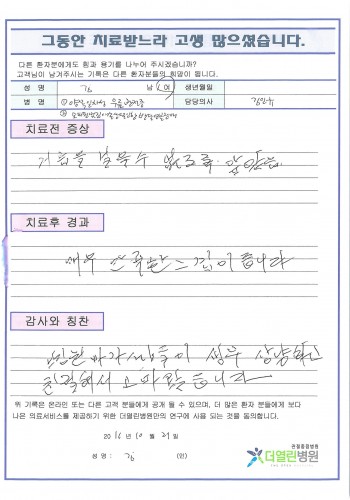 그동안 치료받느라 고생 많으셨습니다.
다른 환자분에게도 힘과 용기를 나누어 주시겠습니까?
고객님이 남겨주시는 기록은 다른 환자분들의 희망이 됩니다.
성 명 김 남 여 생년월일
병 명 담당의사
치료전 증상
걸음을 걸을수 없도록 아팠음
치료후 경과
매우 만족한 느낌이 듭니다
감사와 칭찬
병원마가 사람들이 너무 상냥하고
친절해서 고마웠습니다
위 기록은 온라인 또는 다른 고객 분들에게 공개 될 수 있으며, 더 많은 환자 분들에게 보다
나은 의료서비스를 제공하기 위한 더열린병원만의 연구에 사용 되는 것을 동의합니다.
2016년 10월 21일
성명 : 김 (인)
관절중점병원
더열린병원